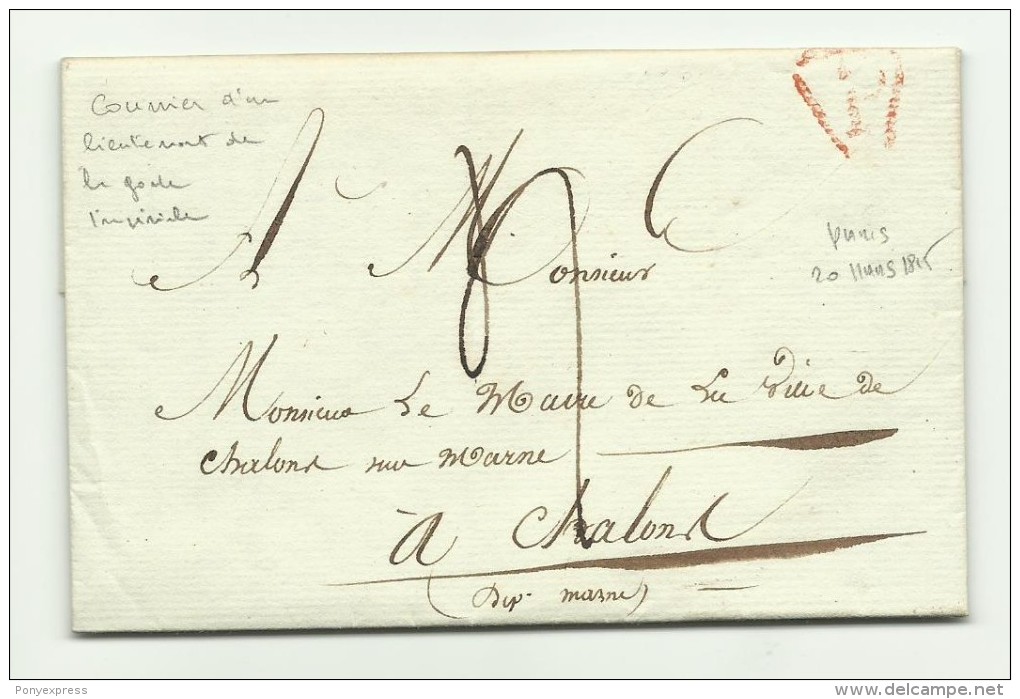 Courrier d'un
lieutenant de
la garde
impériale
Paris
20 Mars 1815
A Monsieur
Monsieur Le Maire de La Ville de
Chalons sur Marne
à Chalons
(Dép. marne)
Ponyexpress
delcampe.net